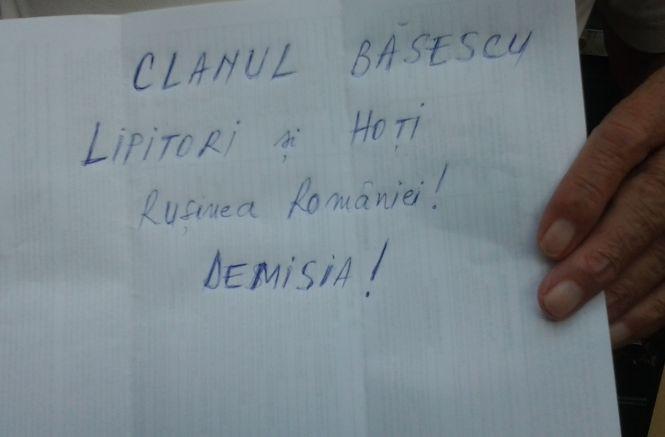 CLANUL BĂSESCU
LIPITORI și HOȚI
Rușinea României!
DEMISIA!